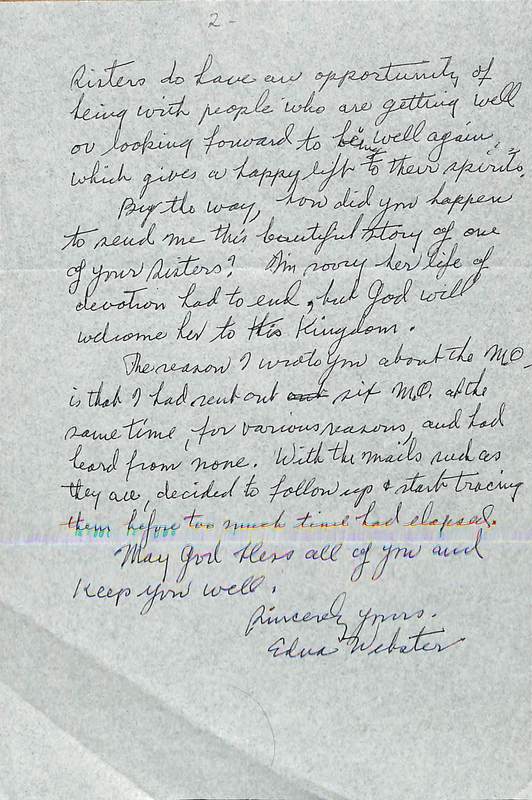 2 -
Sisters do have an opportunity of
being with people who are getting well
or looking forward to being well again,
which gives a happy lift to their spirits.
By the way, how did you happen
to send me this beautiful story of one
of your Sisters? I'm sorry her life of
devotion had to end, but God will
welcome her to His Kingdom.
The reason I wrote you about the M.O.
is that I had sent out six M.O. at the
same time, for various reasons, and had
heard from none. With the mails such as
they are, decided to follow up & start tracing
them before too much time had elapsed.
May God bless all of you and
keep you well.
Sincerely yours.
Edna Webster